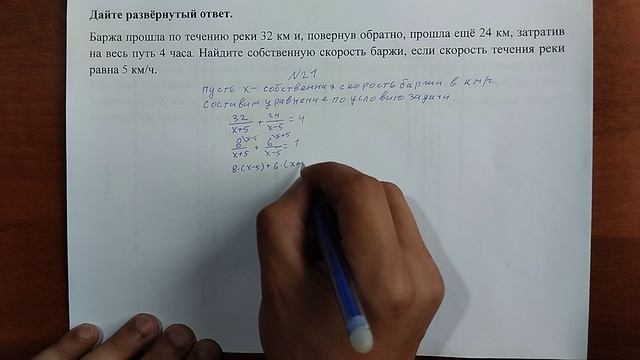 Дайте развёрнутый ответ.
Баржа прошла по течению реки 32 км и, повернув обратно, прошла ещё 24 км, затратив
на весь путь 4 часа. Найдите собственную скорость баржи, если скорость течения реки
равна 5 км/ч.
№21
Пусть x - собственная скорость баржи в км/ч.
Составим уравнение по условию задачи.
32/(x+5) + 24/(x-5) = 4
8\x-5/(x+5) + 6\x+5/(x-5) = 1
8·(x-5)+6·(x+